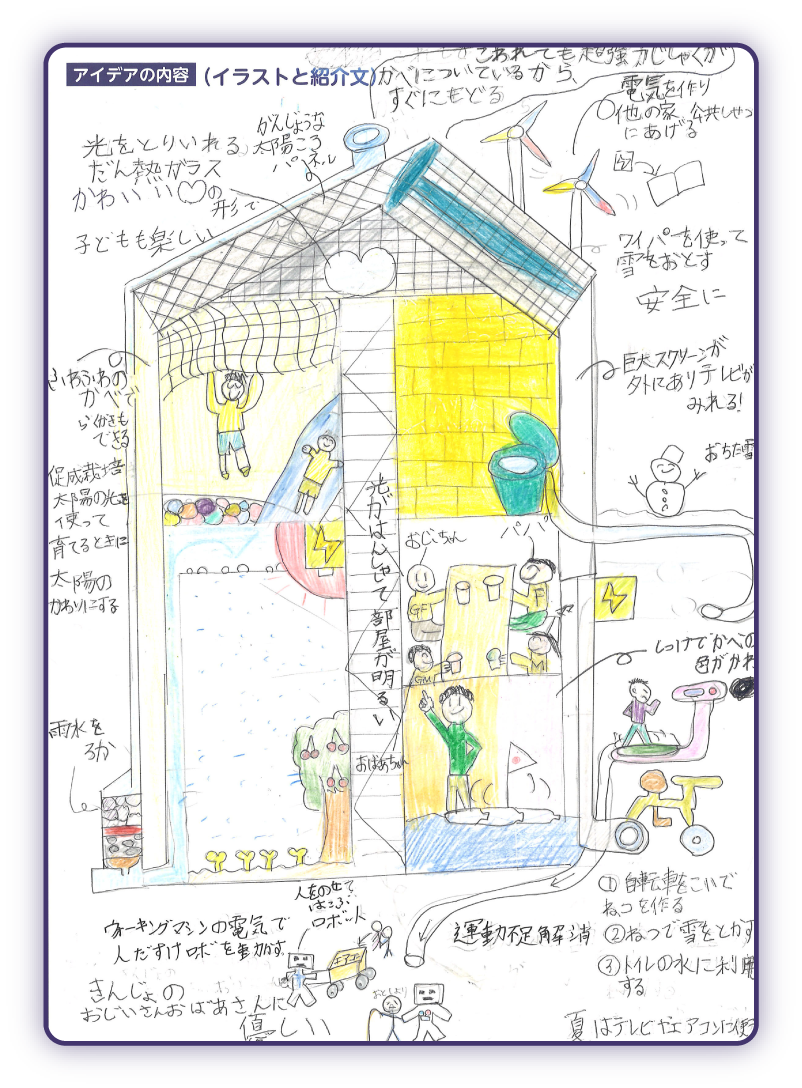 アイデアの内容 (イラストと紹介文)
こわれても超強力じしゃくが
かべについているから、
すぐにもどる
電気を作り
他の家、公共しせつ
にあげる
光をとりいれる
だん熱ガラス
かわいい♡の
形で
子どもも楽しい
がんじょうな
太陽こう
パネル
ワイパーを使って
雪をおとす
安全に
巨大スクリーンが
外にありテレビが
みれる!
おちた雪
ふわふわの
かべで
らくがきも
できる
促成栽培
太陽の光を
使って
育てるときに
太陽の
かわりにする
雨水を
ろか
光がはんしゃして部屋が明るい
おじいちゃん
パパ
GF
F
GM
M
おばあちゃん
しつけでかべの
色がかわ
①自転車をこいで
ねつを作る
②ねつで雪をとかす
③トイレの水に利用
する
夏はテレビやエアコンに使
運動不足解消
人をのせて
はこぶ
ロボット
ウォーキングマシンの電気で
人だすけロボを動かす。
エアコン
きんじょの
おじいさんおばあさんに
優しい
おとしより